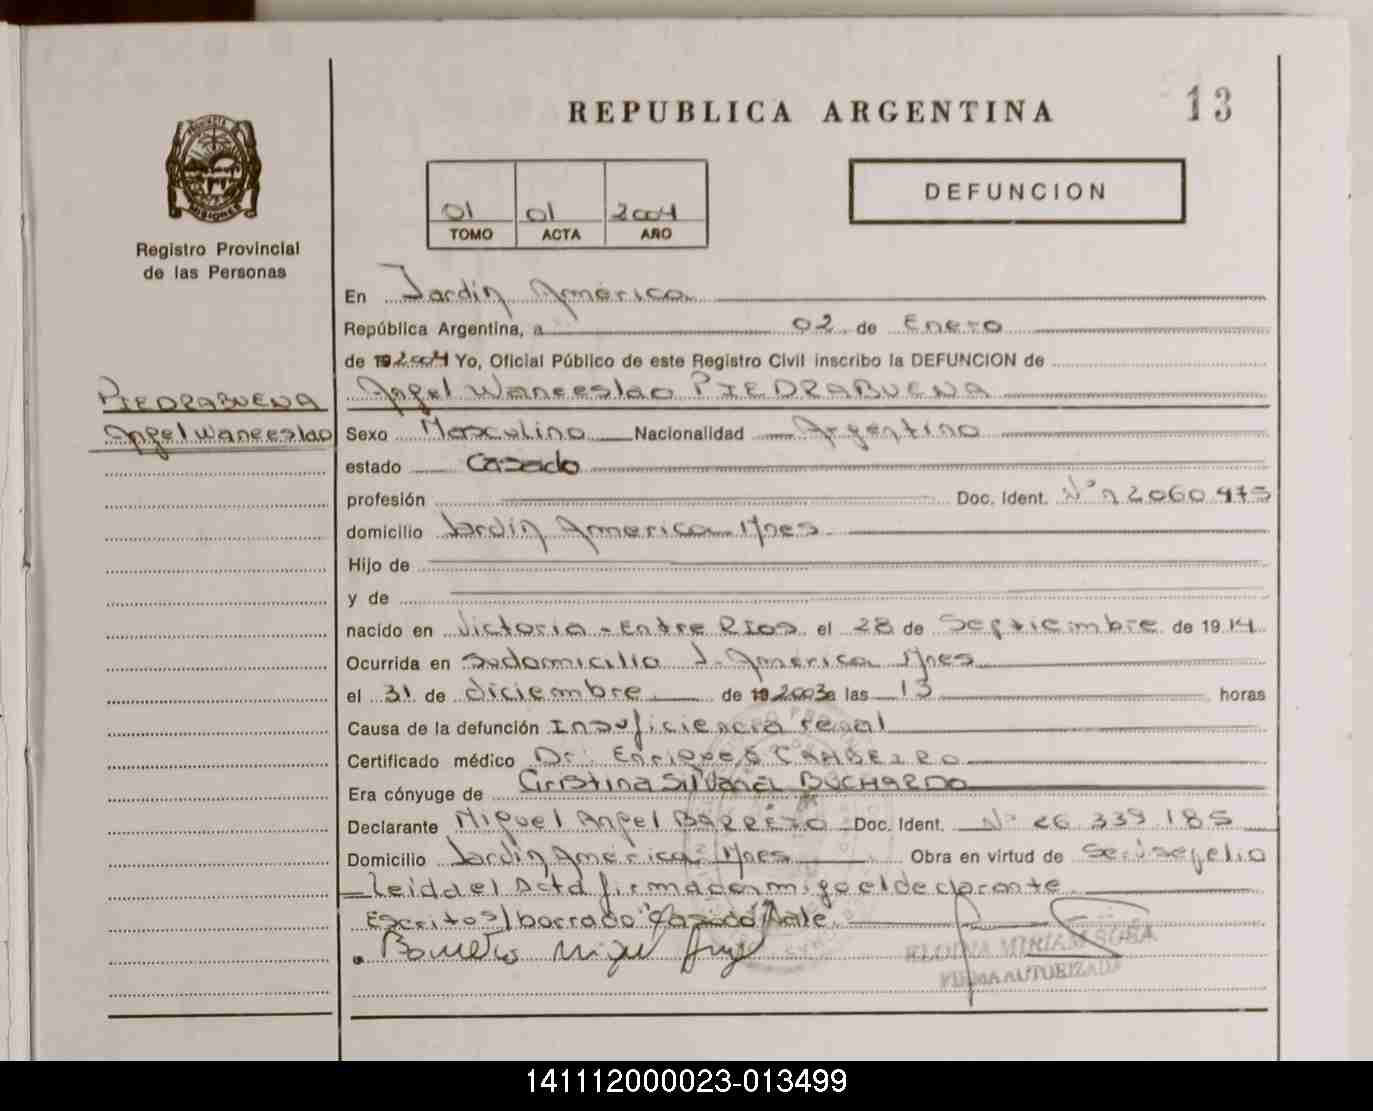 REPUBLICA ARGENTINA
13
PROVINCIA
MISIONES
Registro Provincial
de las Personas
01 01 2004
TOMO ACTA AÑO
DEFUNCION
En Jardín América
República Argentina, a 02 de Enero
de 19 2004 Yo, Oficial Público de este Registro Civil inscribo la DEFUNCION de
PIEDRABUENA
Angel Wanceslao
Angel Wanceslao PIEDRABUENA
Sexo Masculino Nacionalidad Argentino
estado Casado
profesión Doc. Ident. Nº 2060 475
domicilio Jardín America Mnes
Hijo de
y de
nacido en Victoria - Entre RIos el 28 de Septiembre de 1914
Ocurrida en Sudomicilio J. América Mnes
el 31 de diciembre de 19 2003 a las 13 horas
Causa de la defunción Insuficiencia renal
Certificado médico Dr. Enrique
Era cónyuge de Cristina Silvana BUCHARDO
Declarante Miguel Angel BARRETO Doc. Ident. Nº 26 339 185
Domicilio Jardín América Mnes Obra en virtud de Serv sepelio
Leida el Acta firma conmigo el declarante
Escrito s/ borrado "Casado" Vale.
Barreto Miguel Angel
ELODINA MIRIAM SOSA
FIRMA AUTORIZADA
141112000023-013499